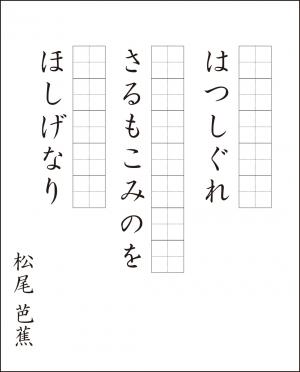 はつしぐれ
さるもこみのを
ほしげなり
松尾芭蕉